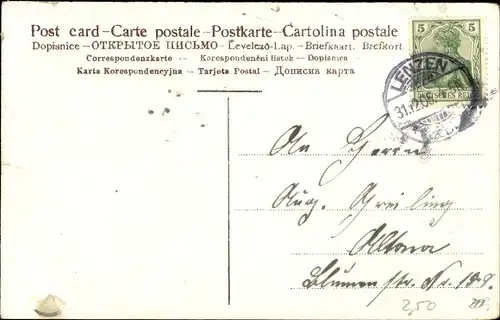 Post card – Carte postale – Postkarte – Cartolina postale
Dopisnice – ОТКРЫТОЕ ПИСЬМО – Levelező-Lap. – Briefkaart. Brefkort.
Correspondenzkarte – Korespondenční listek – Dopisnica
Karta Korespondencyjna – Tarjeta Postal – Дописна карта
5 5
DEUTSCHES REICH
LENZEN
31.12.
An Herrn
Aug. Greiling
Altona
Blumenstr. No.
2,50